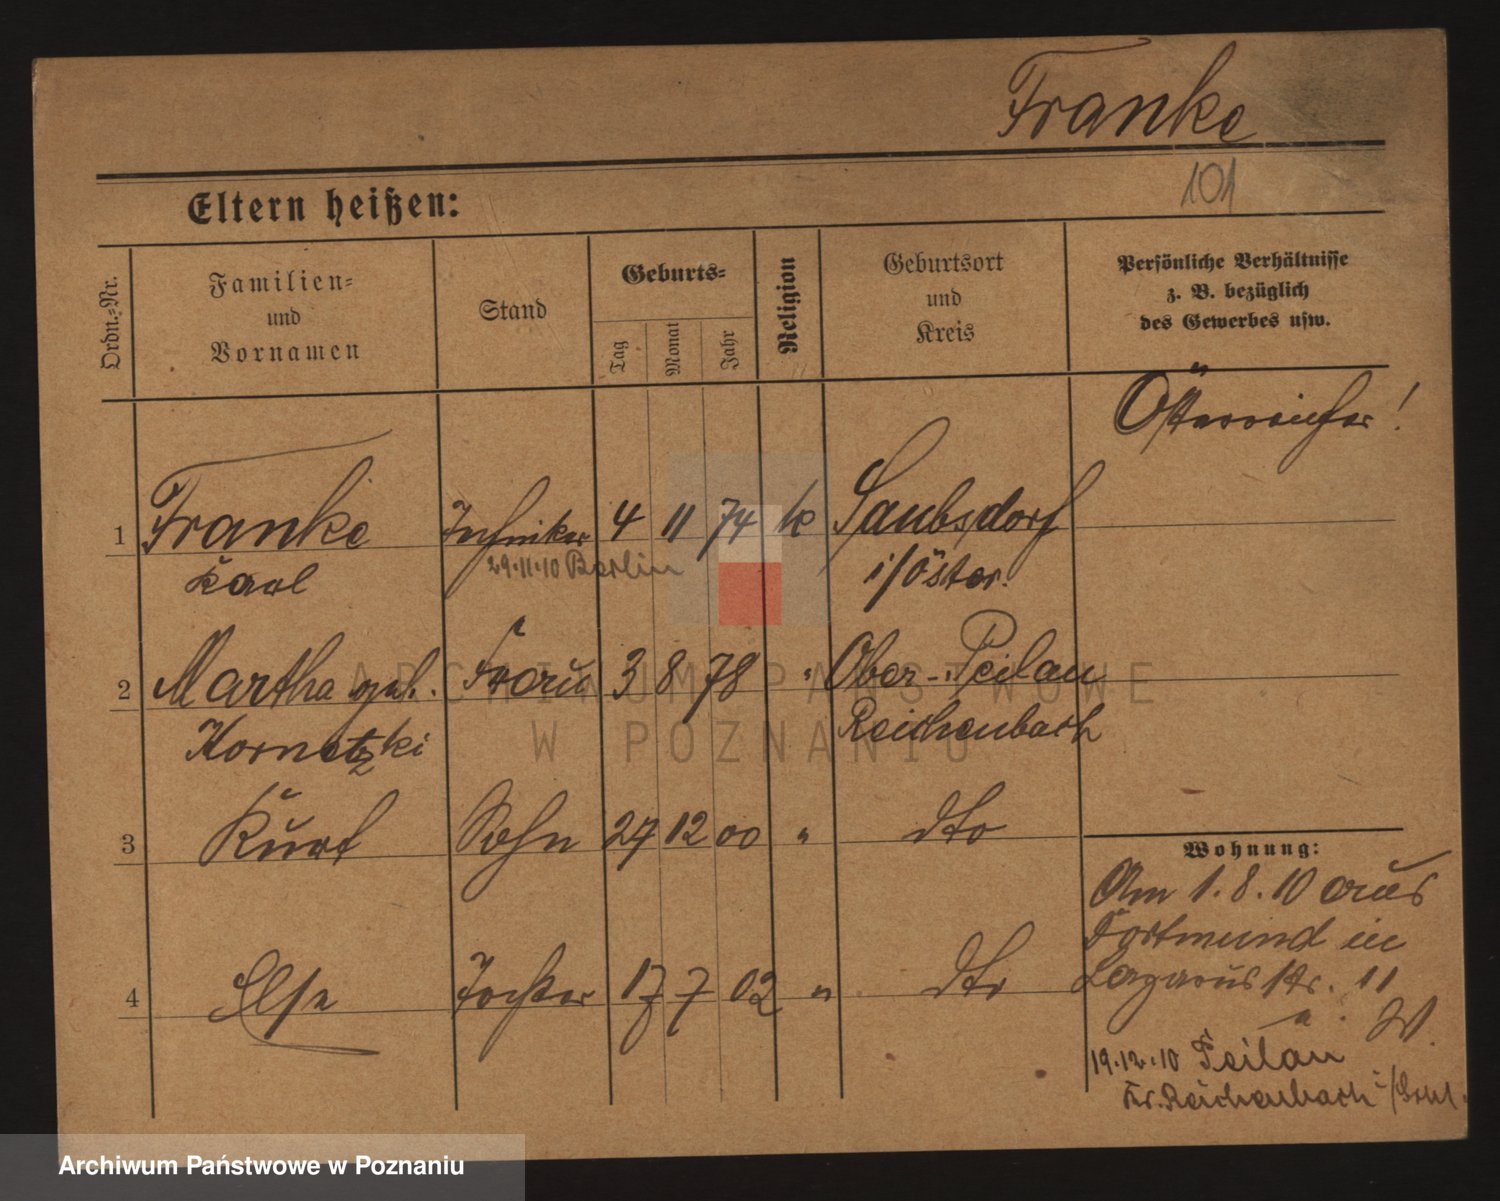 Franke
101
Eltern heißen:
Ordn.-Nr.
Familien-
und
Vornamen
Stand
Geburts-
Tag
Monat
Jahr
Religion
Geburtsort
und
Kreis
Persönliche Verhältnisse
z. B. bezüglich
des Gewerbes usw.
Österreicher!
1 Franke Techniker 4 11 74 k Saubsdorf
29.11.10 Berlin
Karl i/Öster.
2 Martha geb. Frau 3 8 78 " Ober-Peilau
Kornetzki Reichenbach
3 Kurt Sohn 27 12 00 " dto
Wohnung:
Am 1.8.10 aus
Dortmund in
4 Else Tochter 17 7 02 " dto Lazarusstr. 11
a. W.
19.12.10 Peilau
Kr. Reichenbach i/Schl.
ARCHIWUM PAŃSTWOWE
W POZNANIU
Archiwum Państwowe w Poznaniu